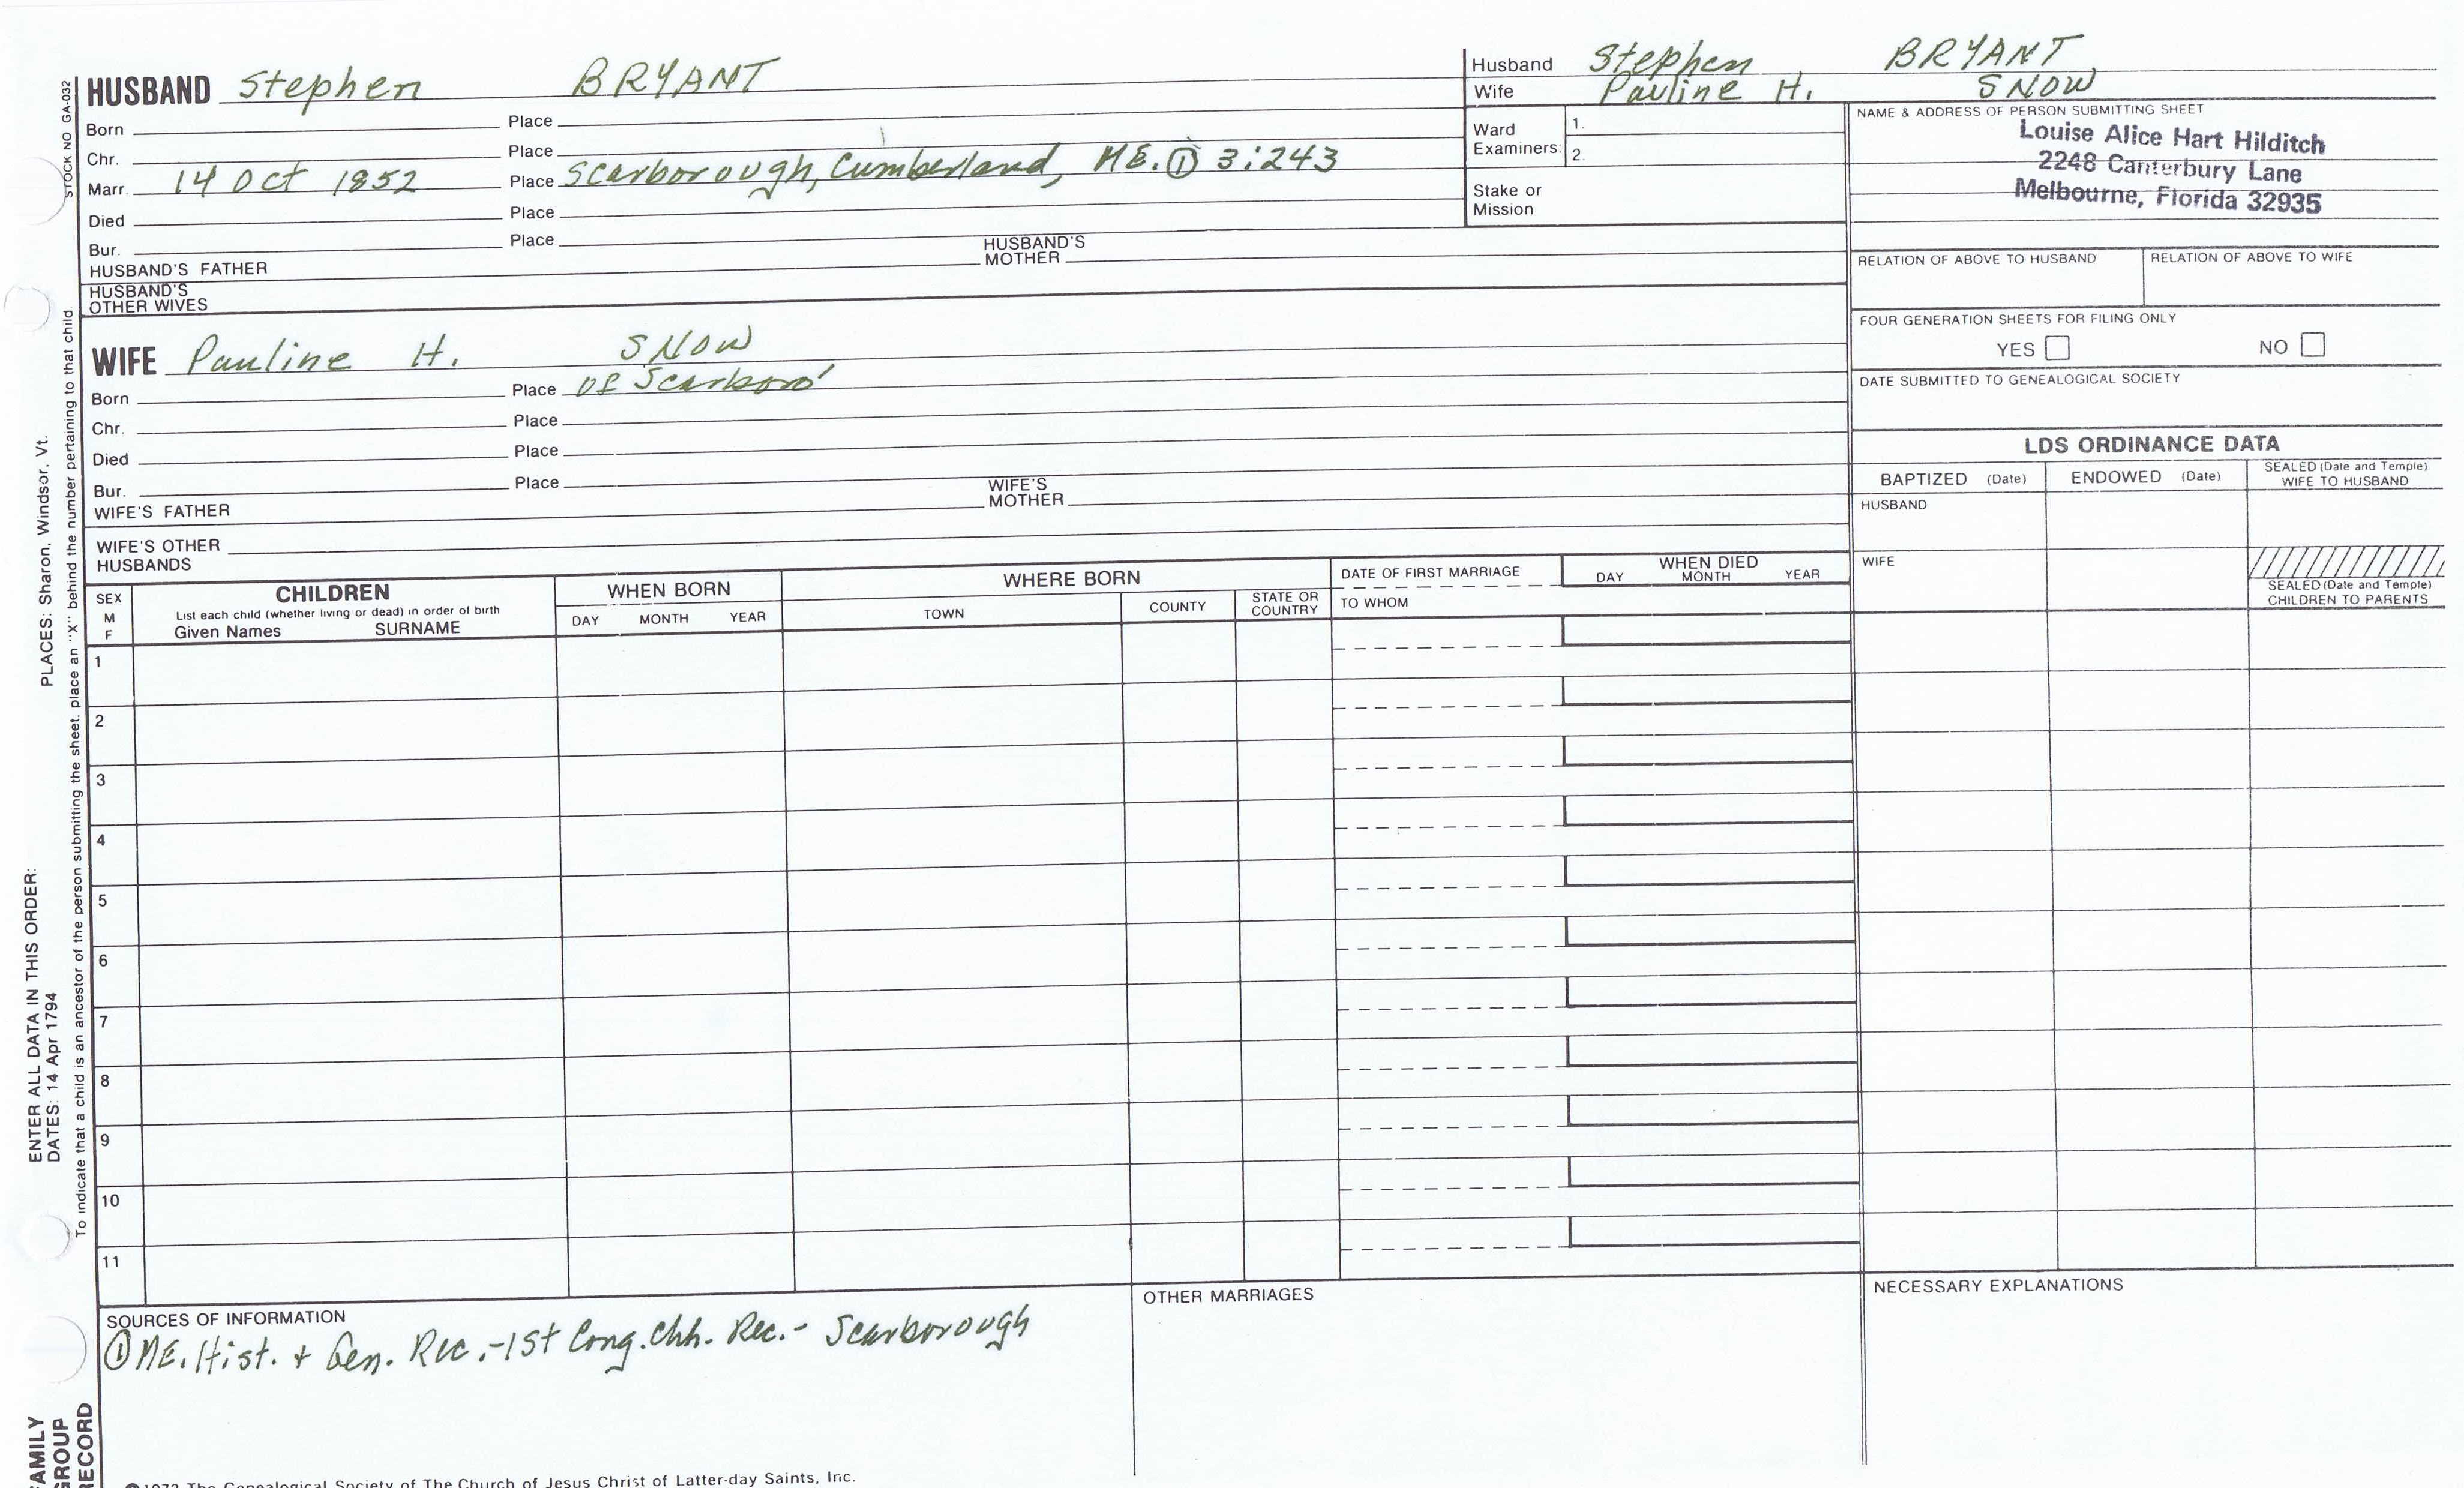 HUSBAND Stephen BRYANT
Born Place
Chr. Place
Marr. 14 Oct 1852 Place Scarborough, Cumberland, ME. ① 3:243
Died Place
Bur. Place
HUSBAND'S FATHER HUSBAND'S MOTHER
HUSBAND'S OTHER WIVES
Husband Stephen BRYANT
Wife Pauline H. SNOW
Ward Examiners: 1.
2.
Stake or Mission
NAME & ADDRESS OF PERSON SUBMITTING SHEET
Louise Alice Hart Hilditch
2248 Canterbury Lane
Melbourne, Florida 32935
RELATION OF ABOVE TO HUSBAND RELATION OF ABOVE TO WIFE
FOUR GENERATION SHEETS FOR FILING ONLY
YES NO
DATE SUBMITTED TO GENEALOGICAL SOCIETY
WIFE Pauline H. SNOW
Born Place of Scarboro'
Chr. Place
Died Place
Bur. Place
WIFE'S FATHER WIFE'S MOTHER
WIFE'S OTHER HUSBANDS
LDS ORDINANCE DATA
BAPTIZED (Date) ENDOWED (Date) SEALED (Date and Temple) WIFE TO HUSBAND
HUSBAND
WIFE
SEALED (Date and Temple) CHILDREN TO PARENTS
SEX
M
F
CHILDREN
List each child (whether living or dead) in order of birth
Given Names SURNAME
WHEN BORN
DAY MONTH YEAR
WHERE BORN
TOWN COUNTY STATE OR COUNTRY
DATE OF FIRST MARRIAGE
TO WHOM
WHEN DIED
DAY MONTH YEAR
1
2
3
4
5
6
7
8
9
10
11
SOURCES OF INFORMATION
① ME. Hist. + Gen. Rec.-1st Cong. Chh. Rec.- Scarborough
OTHER MARRIAGES
NECESSARY EXPLANATIONS
STOCK NO GA-032
PLACES: Sharon, Windsor, Vt.
ENTER ALL DATA IN THIS ORDER:
DATES: 14 Apr 1794
To indicate that a child is an ancestor of the person submitting the sheet, place an "X" behind the number pertaining to that child
FAMILY
GROUP
RECORD
The Genealogical Society of The Church of Jesus Christ of Latter-day Saints, Inc.